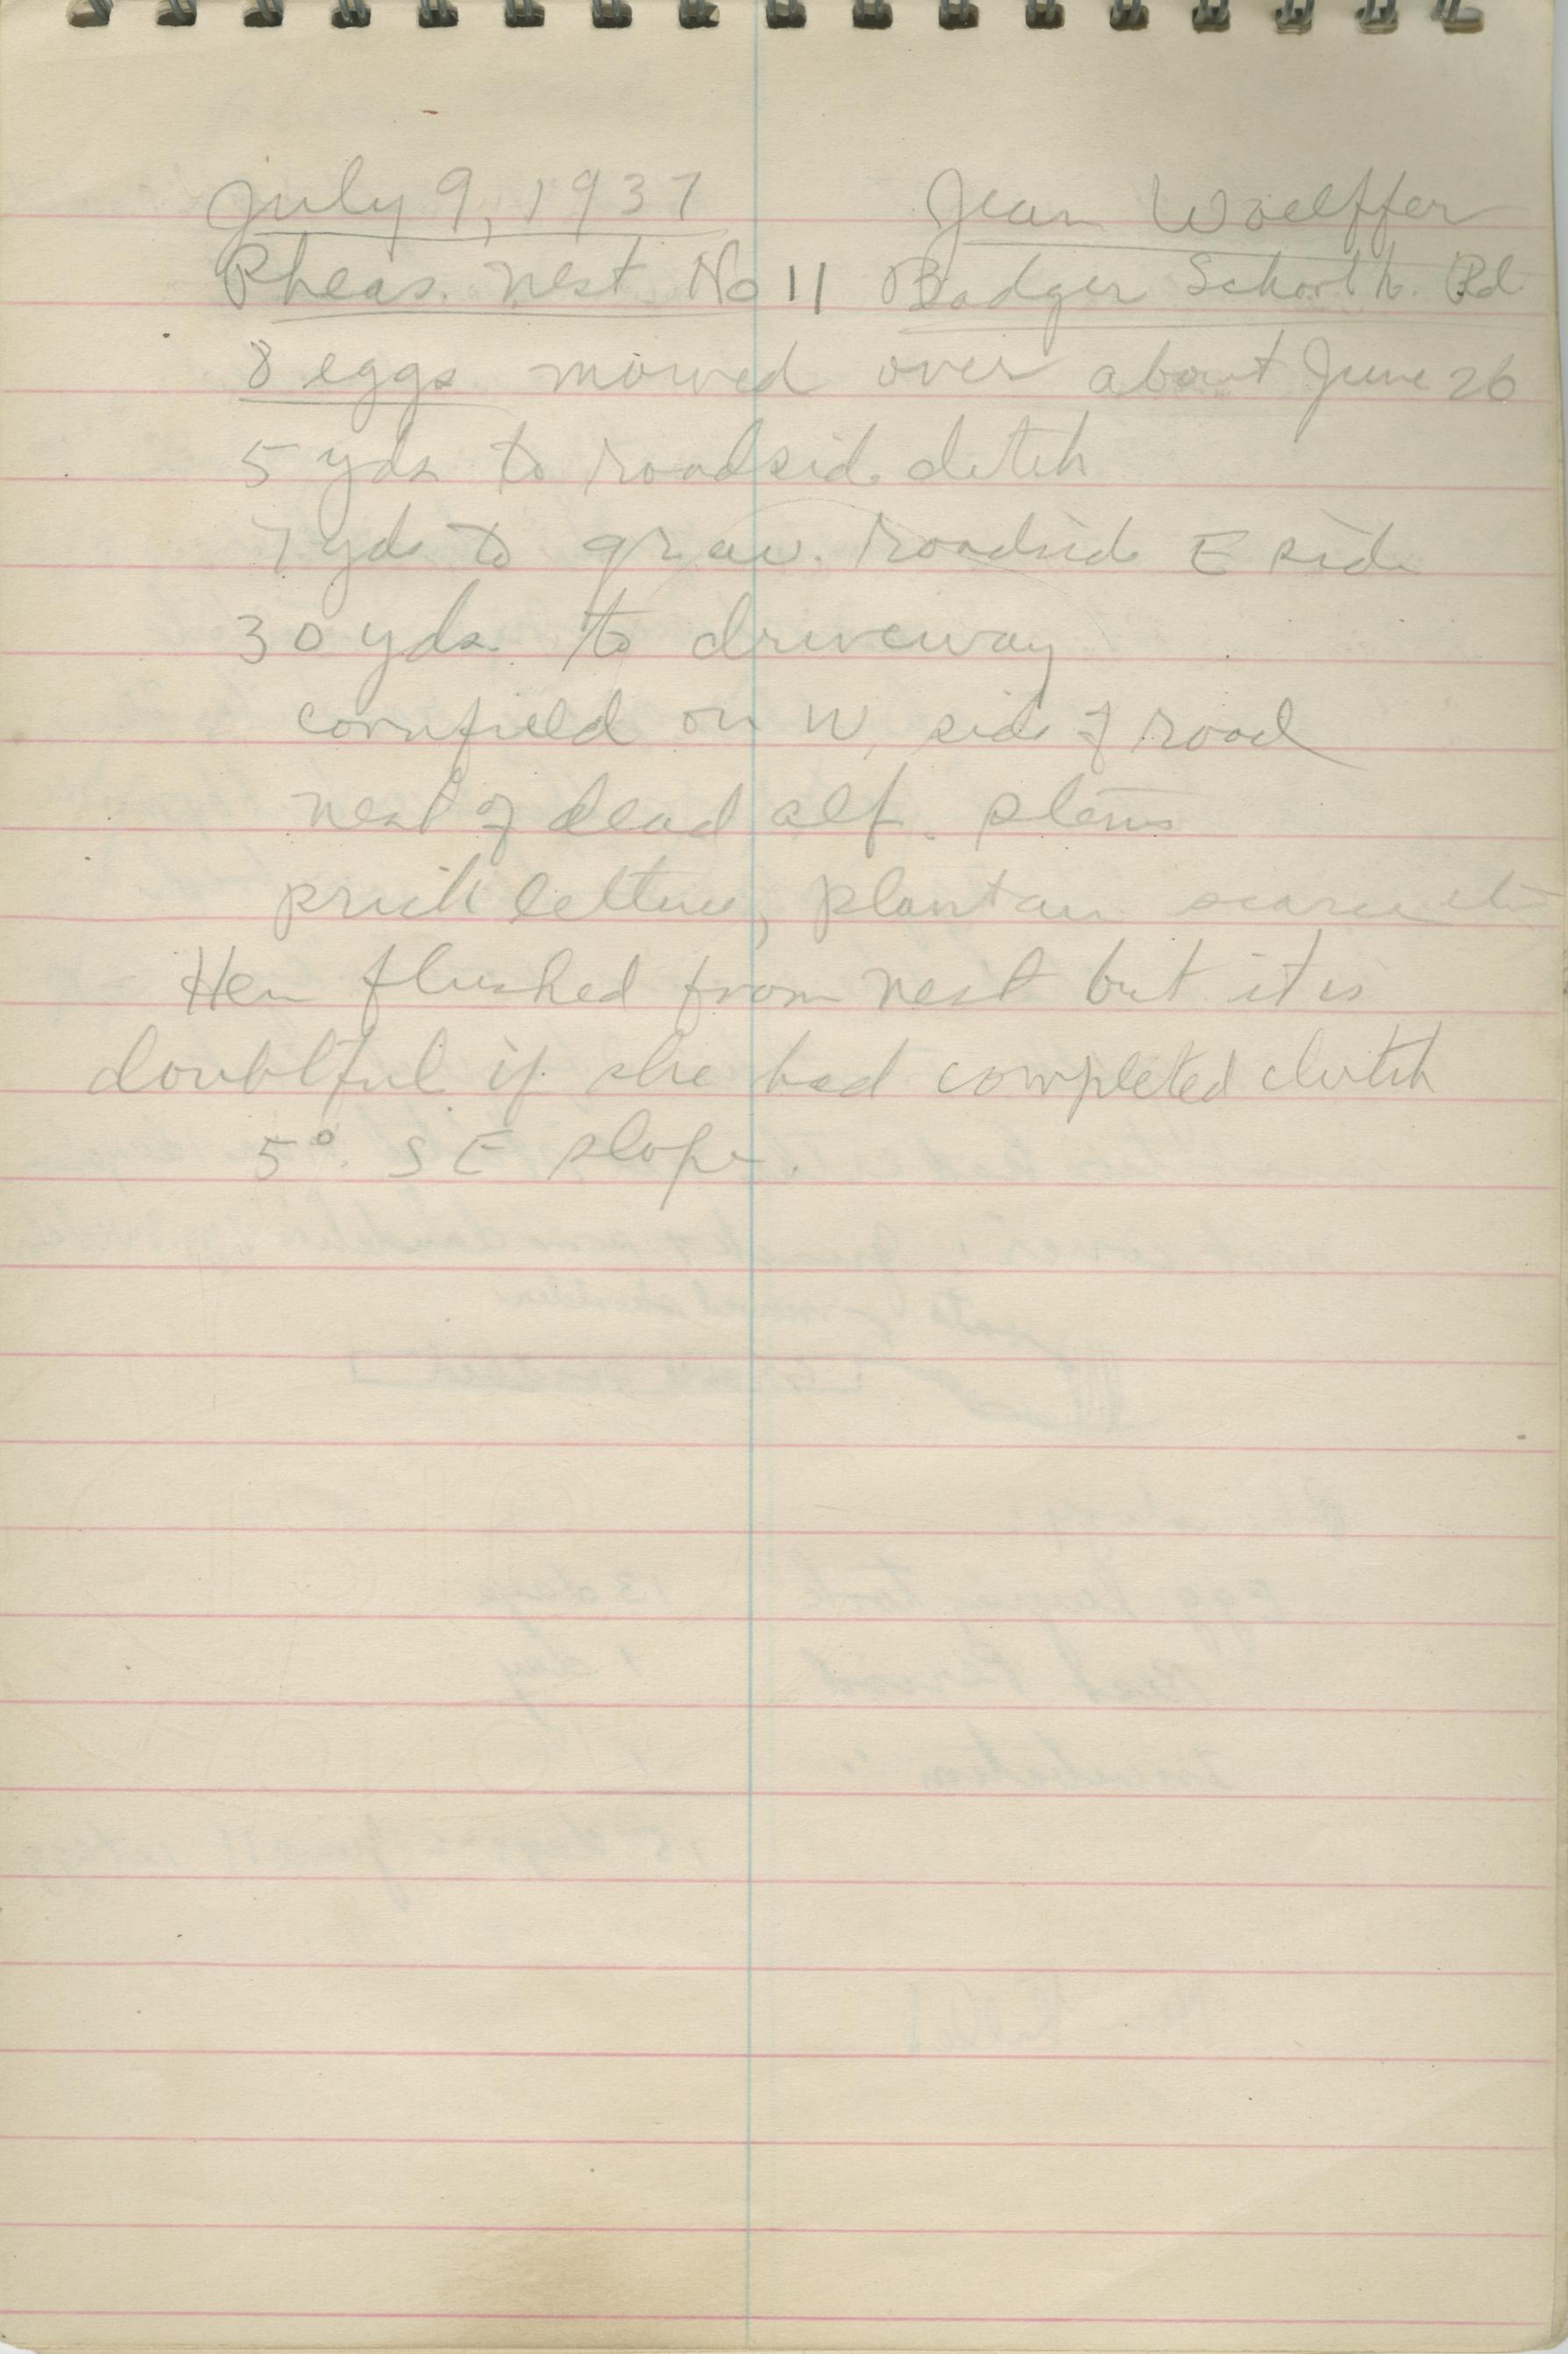 July 9, 1937 Jean Woelffer
Pheas. nest No 11 Badger School h. Rd.
8 eggs mowed over about June 26
5 yds to roadside ditch
7 yds to grav. roadside E side
30 yds. to driveway
cornfield on W. side of road
nest of dead alf. stems
prick lettuce, plantain
Hen flushed from nest but it is
doubtful if she had completed clutch
5° SE slope.